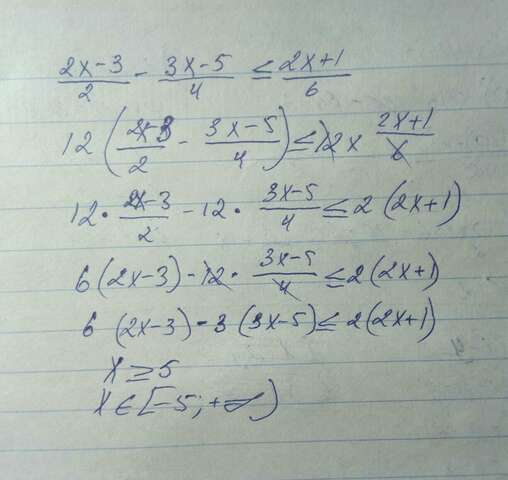 (2x-3)/2 - (3x-5)/4 ≤ (2x+1)/6
12((2x-3)/2 - (3x-5)/4) ≤ 12 x (2x+1)/6
12·(2x-3)/2 - 12·(3x-5)/4 ≤ 2(2x+1)
6(2x-3) - 12·(3x-5)/4 ≤ 2(2x+1)
6(2x-3) - 3(3x-5) ≤ 2(2x+1)
x ≥ 5
x ∈ [-5; +∞)